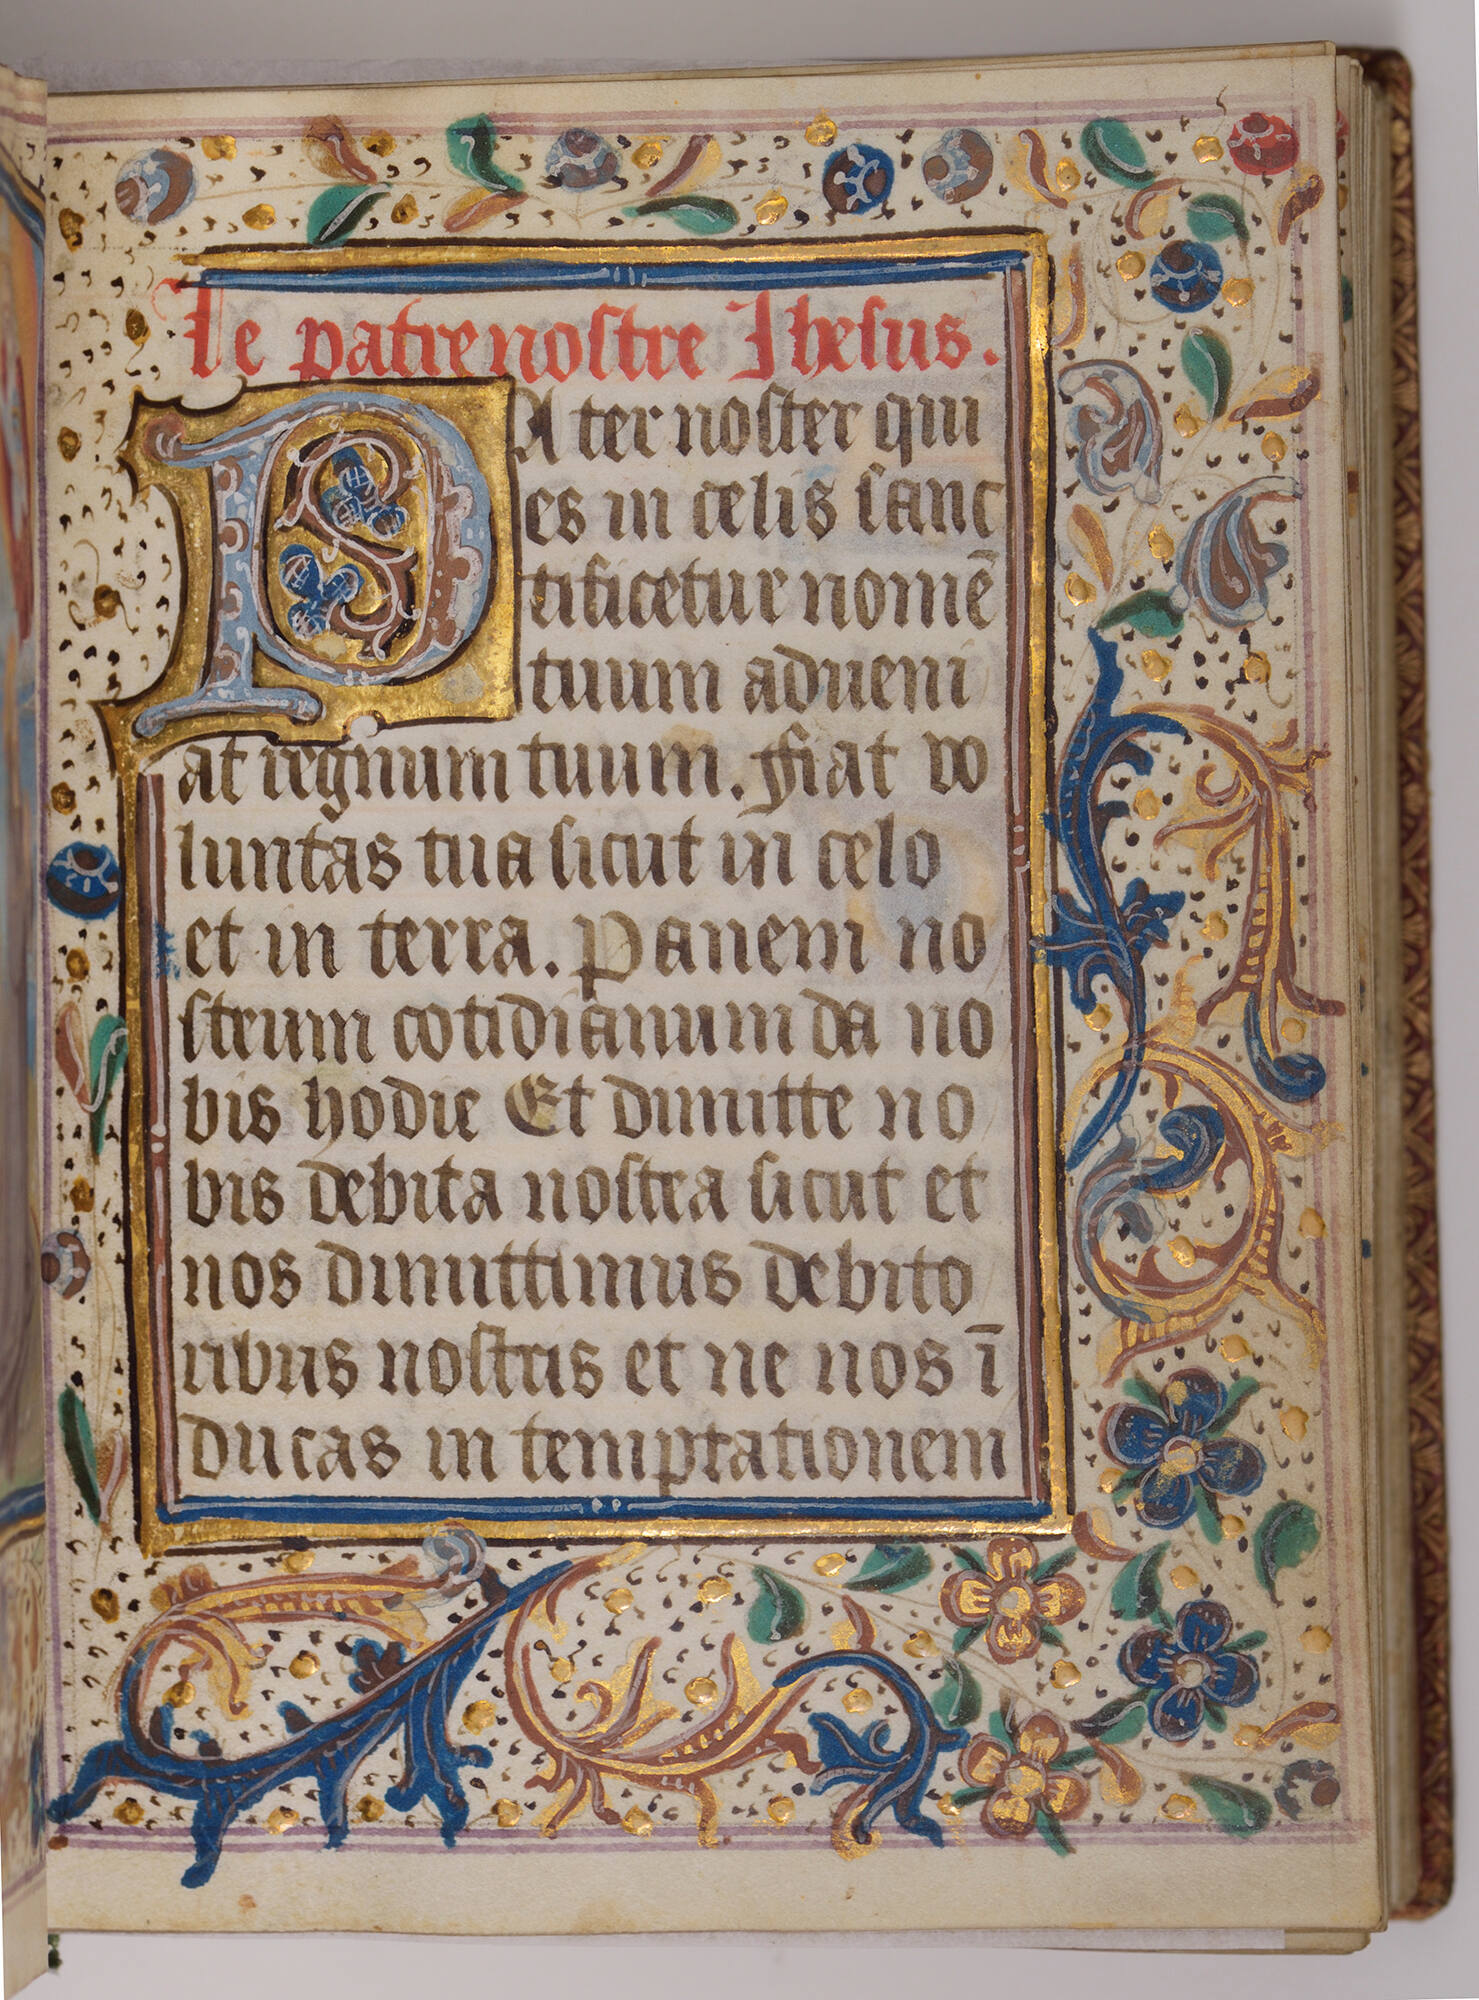 Le patrenostre Ihesus.
PAter noster qui
es in celis sanc
tificetur nomē
tuum adueni
at regnum tuum. fiat vo
luntas tua sicut in celo
et in terra. Panem no
strum cotidianum da no
bis hodie Et dimitte no
bis debita nostra sicut et
nos dimittimus debito
ribus nostris et ne nos ī
ducas in temptationem